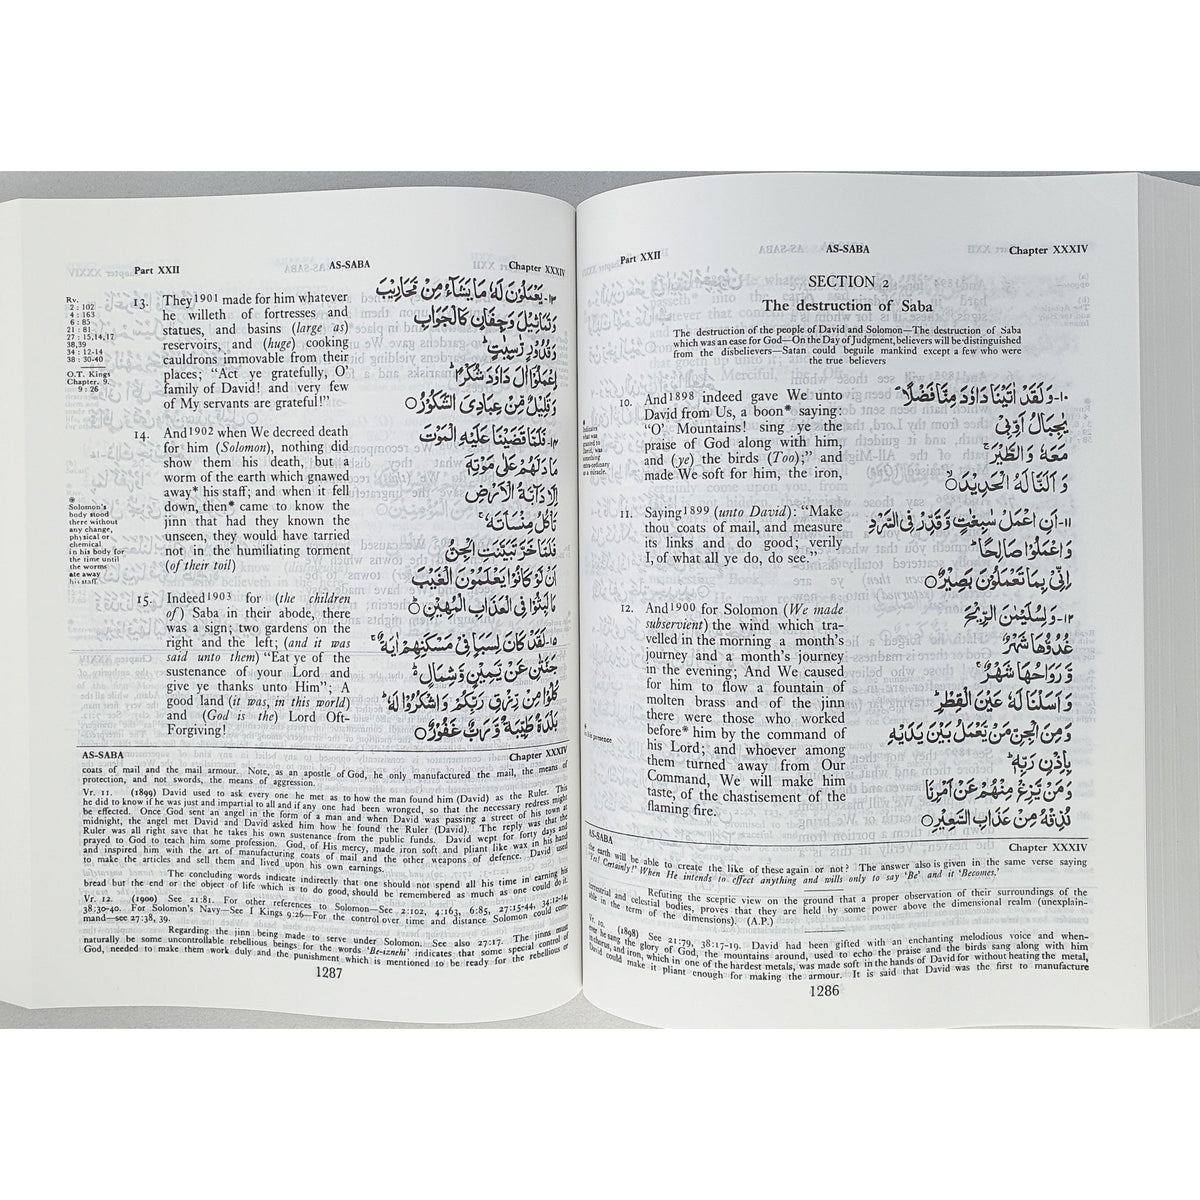 Part XXII
AS-SABA
Chapter XXXIV
SECTION 2
The destruction of Saba
The destruction of the people of David and Solomon—The destruction of Saba
which was an ease for God—On the Day of Judgment, believers will be distinguished
from the disbelievers—Satan could beguile mankind except a few who were
the true believers
10. And1898 indeed gave We unto
David from Us, a boon* saying:
"O' Mountains! sing ye the
praise of God along with him,
and (ye) the birds (Too);" and
made We soft for him, the iron,
۱۰- وَلَقَدْ اٰتَيْنَا دَاوٗدَ مِنَّا فَضْلًا ؕ
يٰجِبَالُ اَوِّبِيْ
مَعَهٗ وَالطَّيْرَ ۚ
وَاَلَنَّا لَهُ الْحَدِيْدَ ۙ
11. Saying1899 (unto David): "Make
thou coats of mail, and measure
its links and do good; verily
I, of what all ye do, do see."
۱۱- اَنِ اعْمَلْ سٰبِغٰتٍ وَّقَدِّرْ فِي السَّرْدِ
وَاعْمَلُوْا صَالِحًا ؕ
اِنِّيْ بِمَا تَعْمَلُوْنَ بَصِيْرٌ
12. And1900 for Solomon (We made
subservient) the wind which tra-
velled in the morning a month's
journey and a month's journey
in the evening; And We caused
for him to flow a fountain of
molten brass and of the jinn
there were those who worked
before* him by the command of
his Lord; and whoever among
them turned away from Our
Command, We will make him
taste, of the chastisement of the
flaming fire.
۱۲- وَلِسُلَيْمٰنَ الرِّيْحَ
غُدُوُّهَا شَهْرٌ
وَّرَوَاحُهَا شَهْرٌ ۚ
وَاَسَلْنَا لَهٗ عَيْنَ الْقِطْرِ ؕ
وَمِنَ الْجِنِّ مَنْ يَّعْمَلُ بَيْنَ يَدَيْهِ
بِاِذْنِ رَبِّهٖ ؕ
وَمَنْ يَّزِغْ مِنْهُمْ عَنْ اَمْرِنَا
نُذِقْهُ مِنْ عَذَابِ السَّعِيْرِ
in his presence
AS-SABA
Chapter XXXIV
the earth will be able to create the like of these again or not? The answer also is given in the same verse saying
'Yes! Certainly!' When He intends to effect anything and wills only to say 'Be' and it 'Becomes.'
Refuting the sceptic view on the ground that a proper observation of their surroundings of the
terrestrial and celestial bodies, proves that they are held by some power above the dimensional realm (unexplain-
able in the term of the dimensions). (A.P.)
(1898) See 21:79, 38:17-19. David had been gifted with an enchanting melodious voice and when-
ever he sang the glory of God, the mountains around, used to echo the praise and the birds sang along with him
chorus, and iron, which in one of the hardest metals, was made soft in the hands of David for without heating the metal,
David could make it pliant enough for making the armour. It is said that David was the first to manufacture
1286
Part XXII
AS-SABA
Chapter XXXIV
Rv.
2 : 102
4 : 163
6 : 85
21 : 81
27 : 15,14,17
38,39
34 : 12-14
38 : 30-40
O.T. Kings
Chapter. 9.
9 : 26
13. They1901 made for him whatever
he willeth of fortresses and
statues, and basins (large as)
reservoirs, and (huge) cooking
cauldrons immovable from their
places; "Act ye gratefully, O'
family of David! and very few
of My servants are grateful!"
۱۳- يَعْمَلُوْنَ لَهٗ مَا يَشَآءُ مِنْ مَّحَارِيْبَ
وَتَمَاثِيْلَ وَجِفَانٍ كَالْجَوَابِ
وَقُدُوْرٍ رّٰسِيٰتٍ ؕ
اِعْمَلُوْٓا اٰلَ دَاوٗدَ شُكْرًا ؕ
وَقَلِيْلٌ مِّنْ عِبَادِيَ الشَّكُوْرُ
14. And1902 when We decreed death
for him (Solomon), nothing did
show them his death, but a
worm of the earth which gnawed
away* his staff; and when it fell
down, then* came to know the
jinn that had they known the
unseen, they would have tarried
not in the humiliating torment
(of their toil)
۱۴- فَلَمَّا قَضَيْنَا عَلَيْهِ الْمَوْتَ
مَا دَلَّهُمْ عَلٰى مَوْتِهٖٓ
اِلَّا دَآبَّةُ الْاَرْضِ
تَاْكُلُ مِنْسَاَتَهٗ ۚ
فَلَمَّا خَرَّ تَبَيَّنَتِ الْجِنُّ
اَنْ لَّوْ كَانُوْا يَعْلَمُوْنَ الْغَيْبَ
مَا لَبِثُوْا فِي الْعَذَابِ الْمُهِيْنِ
Solomon's
body stood
there without
any change,
physical or
chemical
in his body for
the time until
the worms
ate away
his staff
15. Indeed1903 for (the children
of) Saba in their abode, there
was a sign; two gardens on the
right and the left; (and it was
said unto them) "Eat ye of the
sustenance of your Lord and
give ye thanks unto Him"; A
good land (it was, in this world)
and (God is the) Lord Oft-
Forgiving!
۱۵- لَقَدْ كَانَ لِسَبَاٍ فِيْ مَسْكَنِهِمْ اٰيَةٌ ۚ
جَنَّتٰنِ عَنْ يَّمِيْنٍ وَّشِمَالٍ ؕ
كُلُوْا مِنْ رِّزْقِ رَبِّكُمْ وَاشْكُرُوْا لَهٗ ؕ
بَلْدَةٌ طَيِّبَةٌ وَّرَبٌّ غَفُوْرٌ
AS-SABA
Chapter XXXIV
coats of mail and the mail armour. Note, as an apostle of God, he only manufactured the mail, the means of
protection, and not swords, the means of aggression.
Vr. 11. (1899) David used to ask every one he met as to how the man found him (David) as the Ruler. This
he did to know if he was just and impartial to all and if any one had been wronged, so that the necessary redress might
be effected. Once God sent an angel in the form of a man and when David was passing a street of his town at
midnight, the angel met David and David asked him how he found the Ruler (David). The reply was that the
Ruler was all right save that he takes his own sustenance from the public funds. David wept for forty days and
prayed to God to teach him some profession. God, of His mercy, made iron soft and pliant like wax in his hand
and inspired him with the art of manufacturing coats of mail and the other weapons of defence. David used
to make the articles and sell them and lived upon his own earnings.
The concluding words indicate indirectly that one should not spend all his time in earning his
bread but the end or the object of life which is to do good, should be remembered as much as one could do it.
Vr. 12. (1900) See 21:81. For other references to Solomon—See 2:102, 4:163, 6:85, 27:15-44, 34:12-14,
38:30-40. For Solomon's Navy—See I Kings 9:26—For the control over time and distance Solomon could com-
mand—see 27:38, 39.
Regarding the jinn being made to serve under Solomon. See also 27:17. The jinns must
naturally be some uncontrollable rebellious beings for the words 'Be-iznehi' indicates that some special control of
God, needed to make them work duly and the punishment which is mentioned to be ready for the rebellious
1287